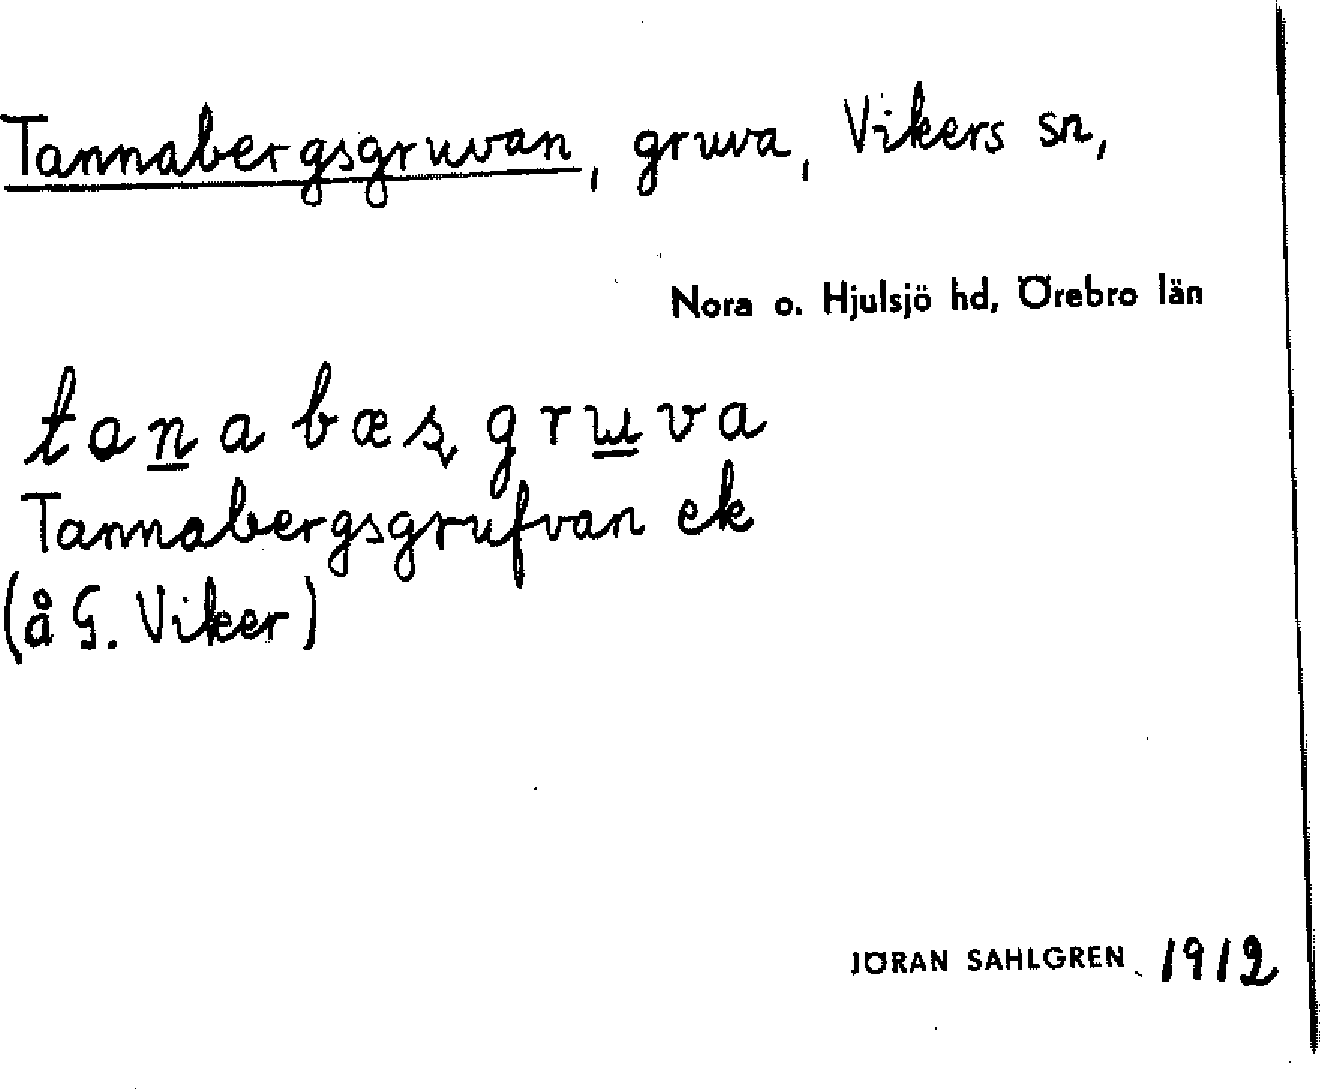 Tannabergsgruvan, gruva, Vikers sn,
Nora o. Hjulsjö hd, Örebro län
tanabæʂgruva
Tannabergsgrufvan ek
(å G. Viker)
JÖRAN SAHLGREN 1912